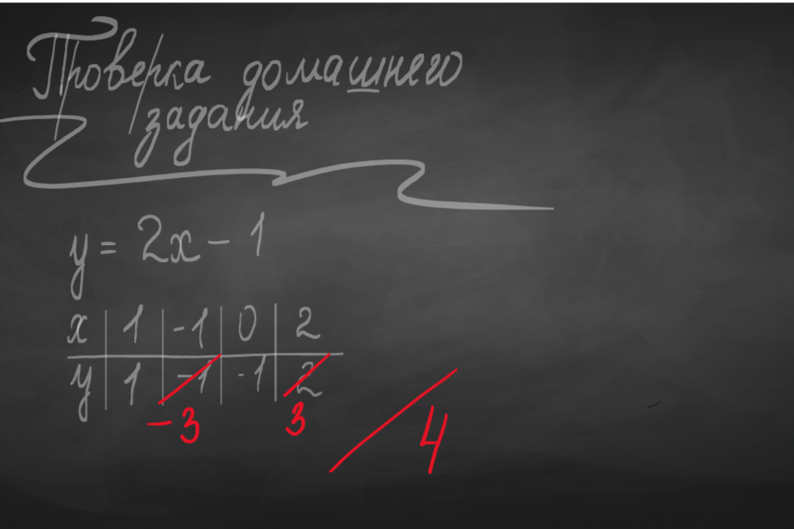 Проверка домашнего
задания
y = 2x - 1
x | 1 | -1 | 0 | 2
y | 1 | -1 | -1 | 2
-3 3
4